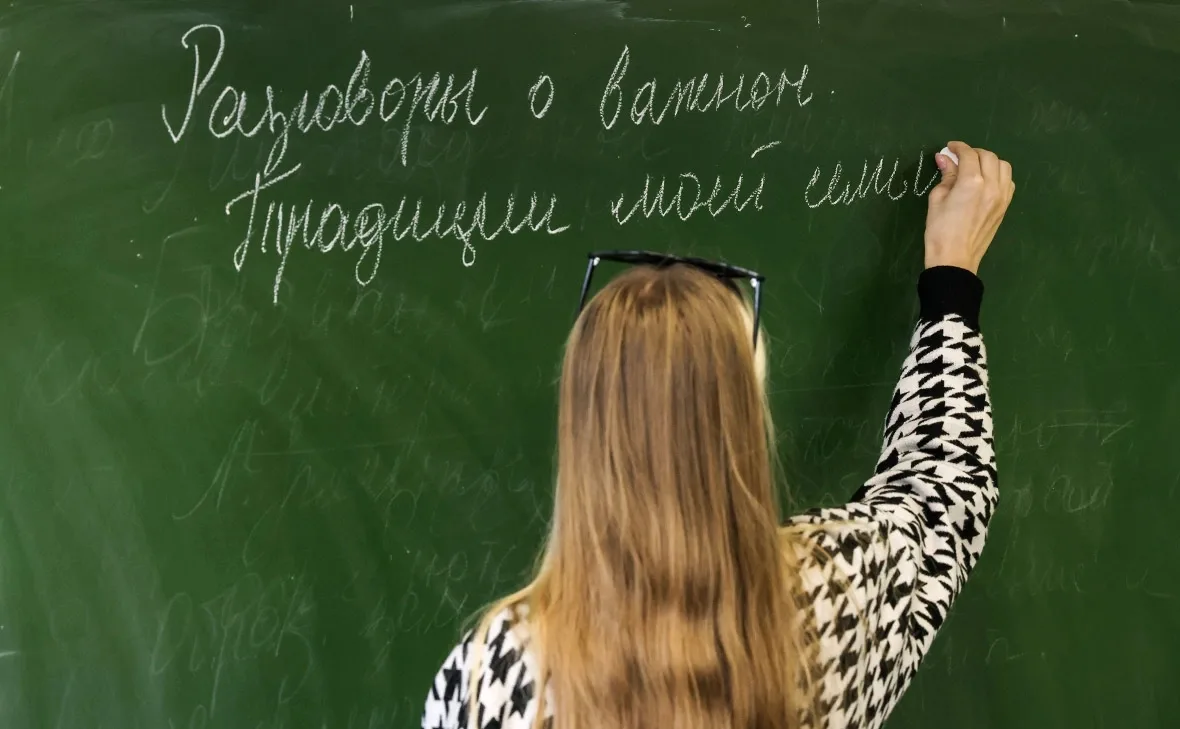 Разговоры о важном.
Традиции моей семь